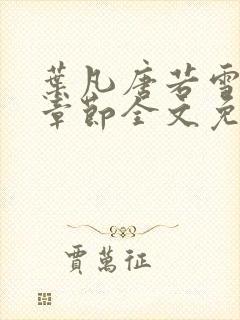 葉凡唐若雪
章節全文免
賈萬征